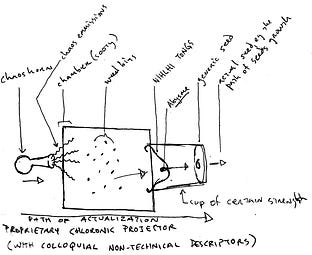 chaoshorn
chaos emissions
chamber (sooty)
weed bits
NIHILHI TONGS
Abysme
generic seed
actual seed of the
path of seeds growth
cup of certain strength
PATH OF ACTUALIZATION
PROPRIETARY CHLORONIC PROJECTOR
(WITH COLLOQUIAL NON-TECHNICAL DESCRIPTORS)